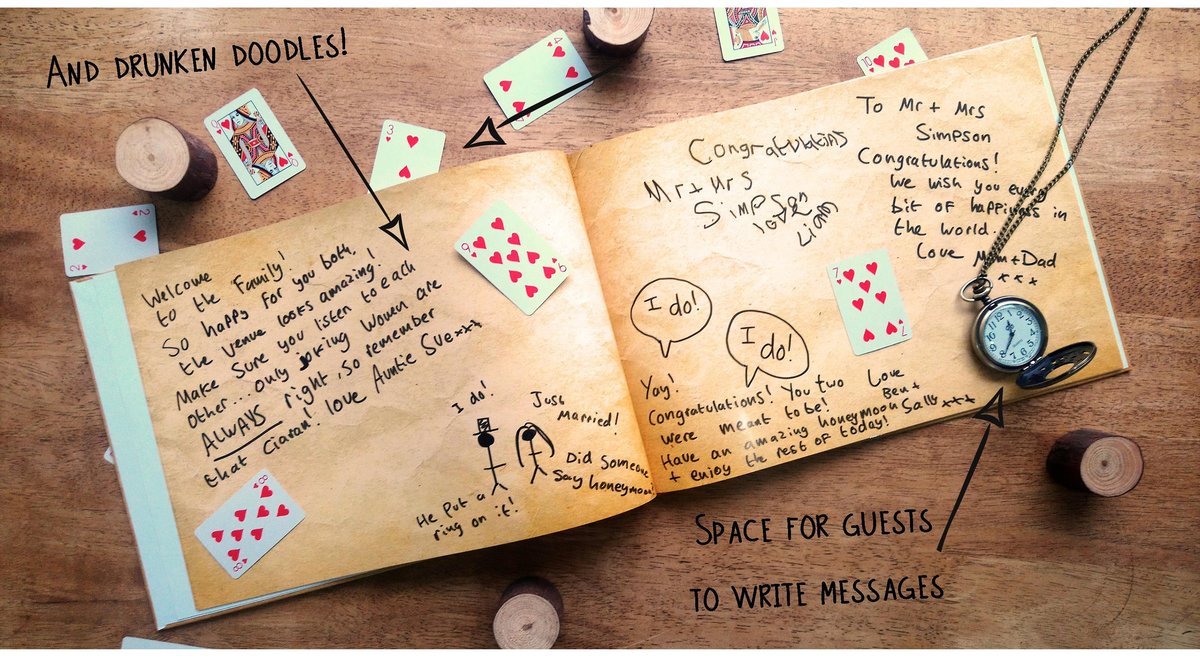 AND DRUNKEN DOODLES!
Welcome
to the Family!
So happy for you both,
the venue looks amazing!
Make Sure you listen to each
other... only joking Women are
ALWAYS right, so remember
that Ciaran! love Auntie Sue xxx
I do!
Just
Married!
Did Someone
say honeymoon!
He Put a
ring on it!
Congratulations
Mr + Mrs
Simpson
love
Liam
To Mr + Mrs
Simpson
Congratulations!
We wish you every
bit of happiness in
the world.
Love Mum + Dad
x x x
I do!
I do!
Yay!
Congratulations! You two
were meant to be!
Have an amazing honeymoon
+ enjoy the rest of today!
Love
Ben +
Sally xxx
SPACE FOR GUESTS
TO WRITE MESSAGES
Q
Q
4
3
10
2
2
9
9
7
7
8
8